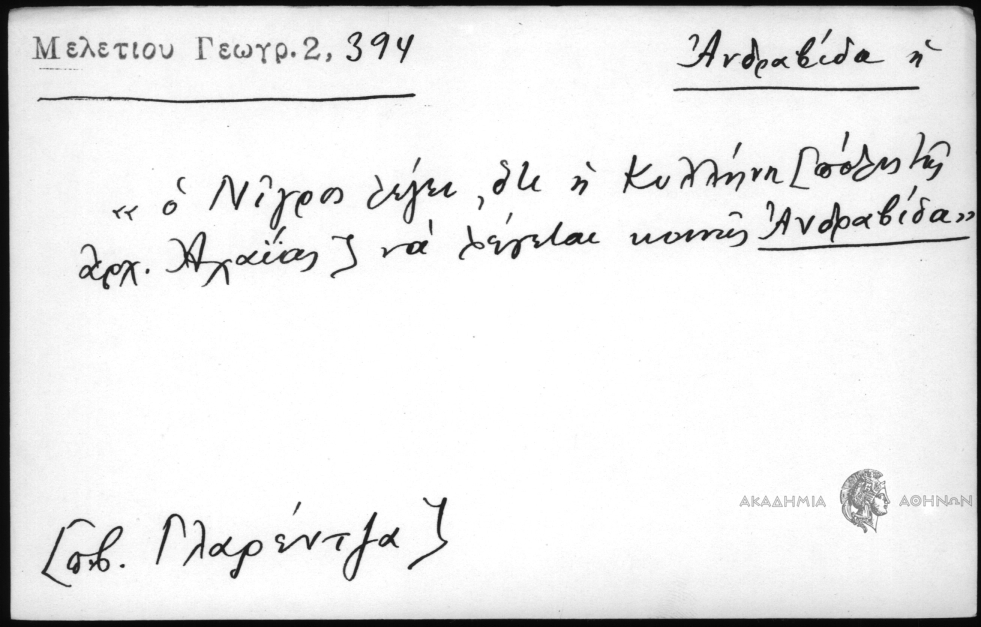 Μελετιου Γεωγρ. 2, 394
Ἀνδραβίδα ἡ
« ὁ Νῖγρος λέγει, ὅτι ἡ Κυλλήνη [πόλις τῆς
ἀρχ. Ἀχαΐας] νά λέγεται κοινῶς Ἀνδραβίδα »
ΑΚΑΔΗΜΙΑ ΑΘΗΝΩΝ
[πβ. Γλαρέντζα]